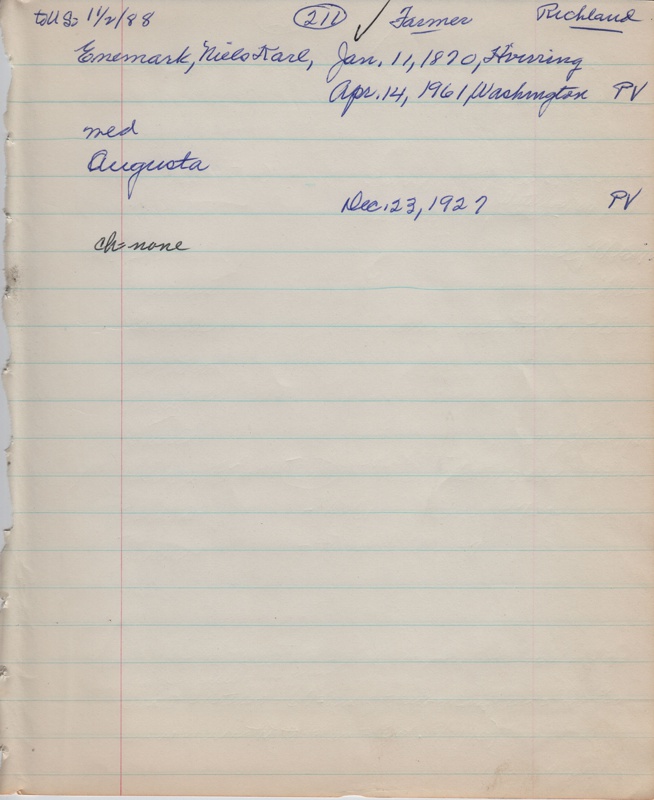 to U S= 11/2/88 211 ✓ Farmer Richland
Enemark, Niels Karl, Jan. 11, 1870, Hvirring
Apr. 14, 1961, Washington PV
med
Augusta
Dec. 23, 1927 PV
ch= none